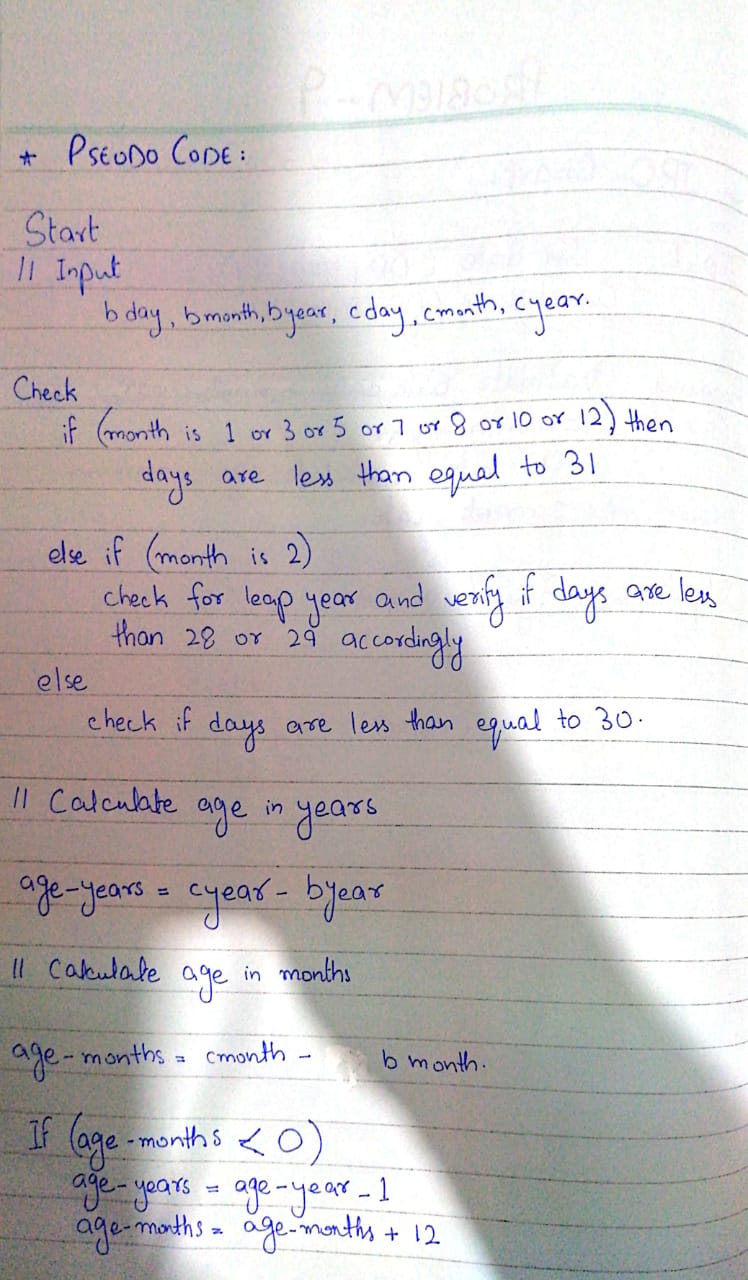 * PSEUDO CODE:
Start
// Input
bday, bmonth, byear, cday, cmonth, cyear.
Check
if (month is 1 or 3 or 5 or 7 or 8 or 10 or 12) then
days are less than equal to 31
else if (month is 2)
check for leap year and verify if days are less
than 28 or 29 accordingly
else
check if days are less than equal to 30.
// Calculate age in years
age-years = cyear - byear
// Calculate age in months
age-months = cmonth - bmonth.
If (age-months < 0)
age-years = age-year - 1
age-months = age-months + 12